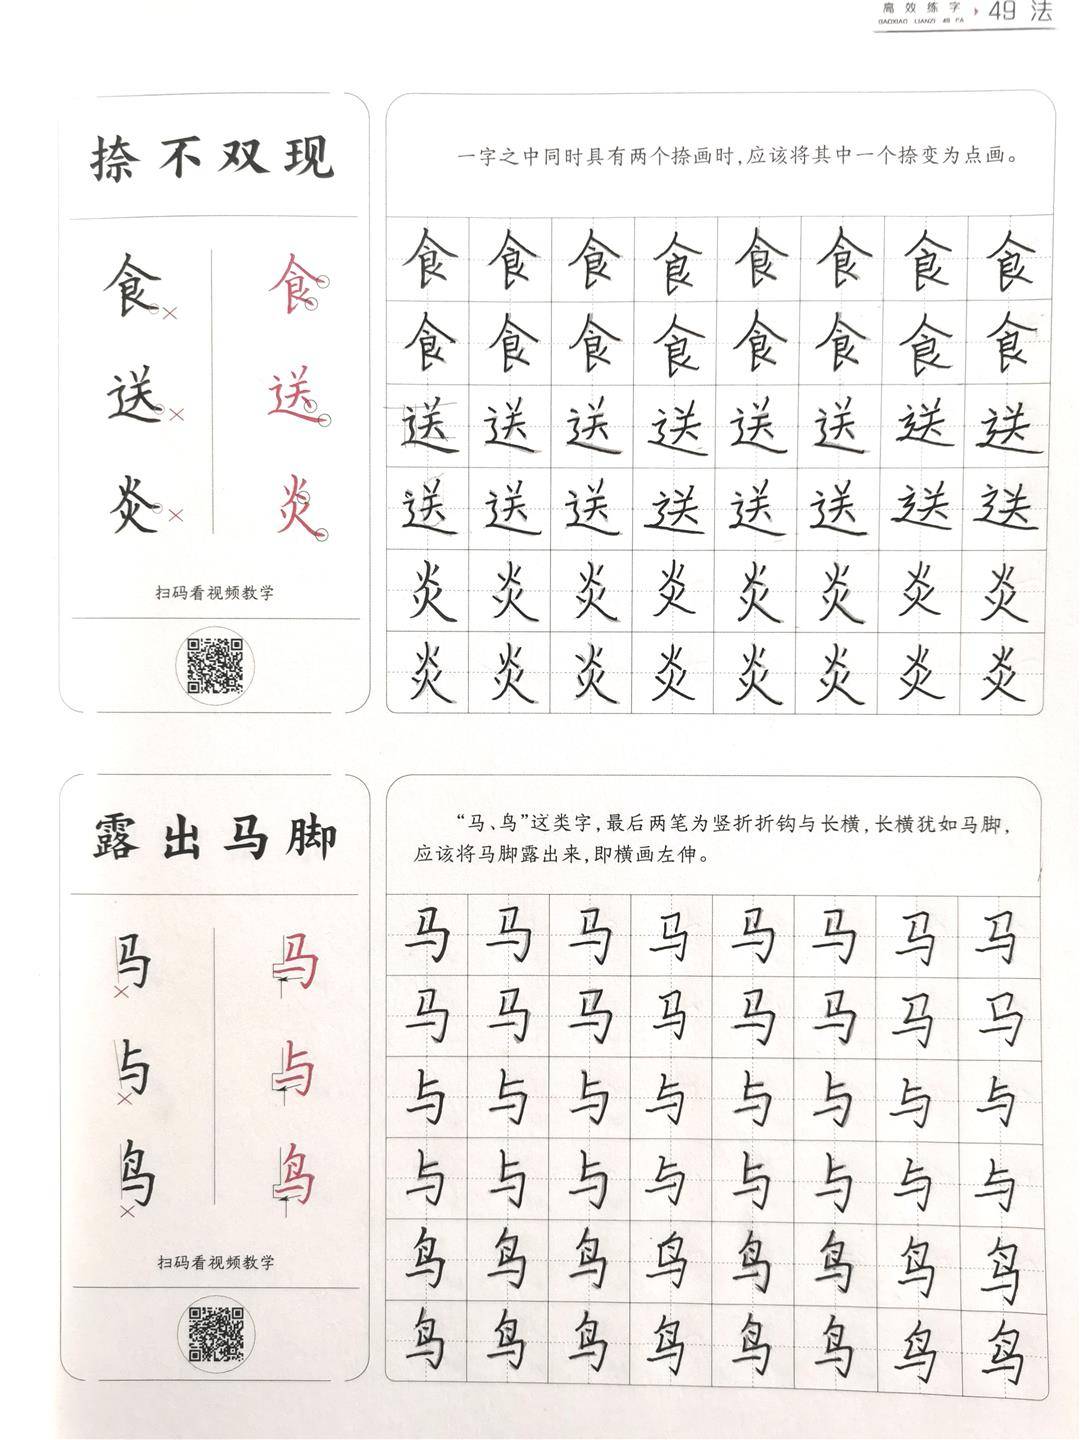 高效练字 49法
GAOXIAO LIANZI 49 FA
捺不双现
食 食
送 送
炎 炎
扫码看视频教学
一字之中同时具有两个捺画时，应该将其中一个捺变为点画。
食食食食食食食食
食食食食食食食食
送送送送送送送送
送送送送送送送送
炎炎炎炎炎炎炎炎
炎炎炎炎炎炎炎炎
露出马脚
马 马
与 与
鸟 鸟
扫码看视频教学
“马、鸟”这类字，最后两笔为竖折折钩与长横，长横犹如马脚，
应该将马脚露出来，即横画左伸。
马马马马马马马马
马马马马马马马马
与与与与与与与与
与与与与与与与与
鸟鸟鸟鸟鸟鸟鸟鸟
鸟鸟鸟鸟鸟鸟鸟鸟